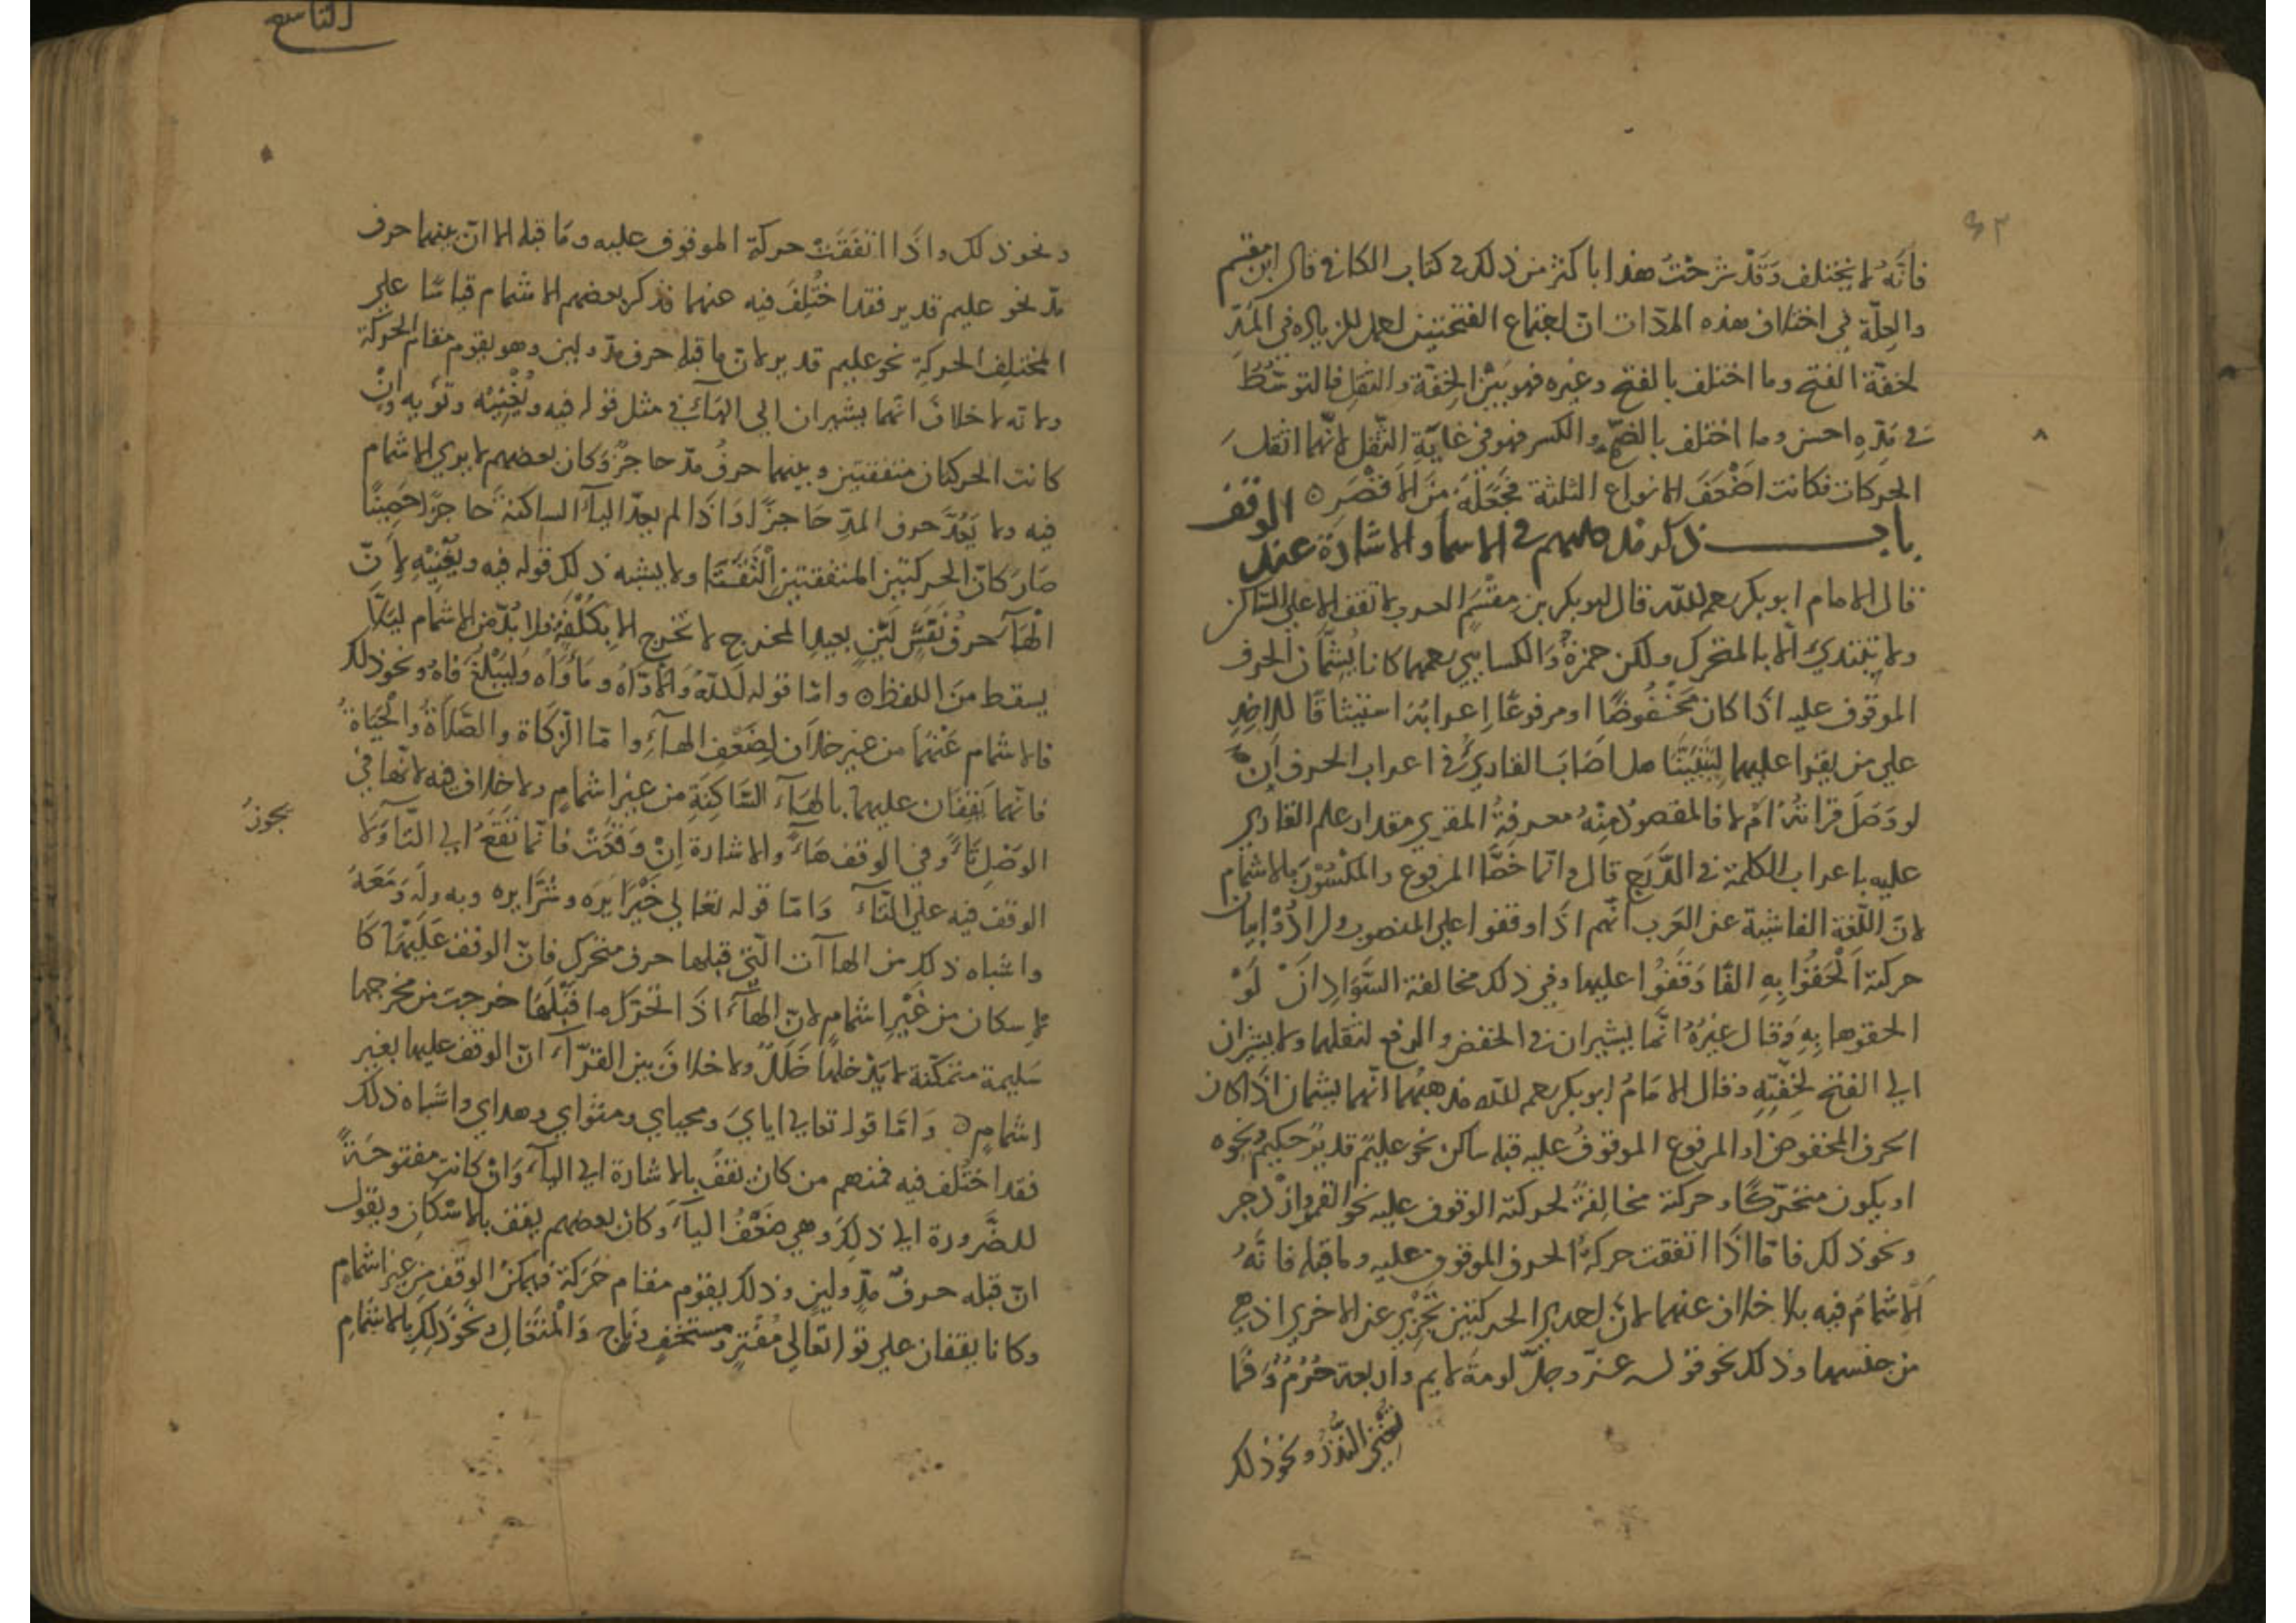 ٤٢
فَانَّهُ لا يختلف وَقَدْ شَرَحْتُ هذا باكثر من ذلك في كتاب الكافي قال ابن مقسم
والعِلّة في اختلاف هذه المدّات ان اجتماع الفتحتين للزيادة في المَدِّ
لخفّة الفتح وما اختلف بالفتح وغيره فهو بَيْنَ الخِفّة والثقل فالتوسّطُ
في مَدِّهِ احسن وما اختلف بالضمّ والكسر فهو في غايَةِ الثّقل لانّهما اثقل
الحركات فكانت اضْعَفَ الانواع الثلثة فَجَعَلَهُ مِنَ الاقْصَرِ ه
باب ذكر مذاهبهم في الاسما والاشارة عند الوقف
قال الامام ابو بكر رحمه الله قال ابو بكر بن مِقْسَمٍ العرب لا تقف الا علي الساكن
ولا تبتدئ الّا بالمتحرك ولكن حمزة والكسايي رحمهما كانا يُشِمّان الحرف
الموقوف عليه اذَا كان مَخْفُوضًا او مرفوعًا إعرابُهُ استيثاقًا للاخذ
علي من يقرا عليهما لِيَتَبَيَّنَا هل اصَابَ القاريُ في اعراب الحرف اِنْ
لو وَصَلَ قراتَهُ امْ لا فالمقصودُ مِنْهُ معرفةُ المقري مقدار علم القاري
عليه باعراب الكلمة في الدَّرَجِ قال وانّما خَصَّا المرفوع والمكْسُوْرَ بالاشمام
لانّ اللّغة الفاشية عن العَرب انّهم اذَا وقفوا علي المنصوب وارادُوْا بيان
حركته اَلْحَقُوْا بِهِ الفًا وَقَفُوا عليها وفي ذلك مخالفة السَّوَادِ انْ لَوْ
الحقوها بِهِ وَقال غيرُهُ انَّما يشيران في الخفض والرفع لثقلهما ولا يشيران
الي الفتح لِخِفَّتِهِ وقال الامَامُ ابو بكر رحمه الله مذهبُهُما انّهما يشمان اذَا كان
الحرف المخفوض او المرفوع الموقوفُ عليه قبله ساكن نحو عليمٌ قديرٌ حكيم ونحوه
او يكون متحرّكًا وحركته مخالِفةً لحركة الموقوف عليه نحو القمر وازْدجر
ونحو ذلك فامّا اذَا اتفقت حركةُ الحرف الموقوف عليه وما قبله فانَّهُ
لَا اِشْمَامَ فيه بلا خلاف عنهما لانَّ احدي الحركتين تَجْزِي عن الاخري اذ هي
من جنسها وذلك نحو قوله عزّ وجلّ لومةَ لايم واربعة حُرُمٌ وَ فما
تُغنِ النُّذُرُ ونحو ذلك
التاسع
ونحو ذلك واذَا اتفَقَتْ حركة الموقوف عليه ومَا قبله الا انّ بينهما حرف
مدّ نحو عليم قدير فقد اختُلِفَ فيه عنهما فذكر بعضهم الاشمام قياسًا علي
المختلِف الحركةِ نحو عليم قدير لان ما قبله حرف مدّ ولين وهو يقوم مقام الحركة
ولانه لا خلافَ انّهما يشيران الي الهَآءِ في مثل قوله فيه و وتؤيه وانْ
كانت الحركتان متفقتين وبينهما حرفُ مدّ حاجزٌ وَكان بعضهم لا يري الاشمام
فيه ولا يَعُدُّ حرف المدّ حَاجزًا وَاذَا لم يعدّ اليآءَ الساكنة حَاجزًا حَصِينًا
صَارَ كانّ الحركتين المتفقتين الْتَقَتَا ولا يشبه ذلك قوله فيه لِاَنّ
الْهَآءَ حرفُ نَفَسٍ لَيِّنٍ بعيد المخرج لا تخرج الا بِكُلْفَةٍ فلا بُدّ مِن الاشمام لِيَلّا
يسقط مِنَ اللفظ ه وامّا قوله لَلَّهُ وَالَأَوَّاهُ ومَأْوَاه وَلِيَبْلُغَ فَاهُ ونحو ذلك
فالاشمام عَنْهُمَا من غير خلاف لِضَعْفِ الهآءِ وامّا الزّكَاة والصَّلَاةُ والْحَيَاةُ
فانّهما يَقِفَان عليهما بالهَآءِ السَّاكِنَةِ من غير اشمامٍ ولا خلاف فيه لانّها في
الوَصْلِ تَآءٌ وفي الوقف هَآءٌ والاشارة اِنْ وَقَعَتْ فانّما تَقَعُ الي التّآءِ وَلَا
يجوزُ
الوقف فيه علي التَّآءِ وَامّا قوله تعالي خَيْرًا يَرَه وشَرًّا يره وبه وله وَمَعَهُ
واشباه ذلك من الهاآت الَّتي قبلها حرف متحرك فانّ الوقف عَلَيْهَا كَا
لاسكان من غَيْرِ اشمامٍ لانّ الهآءَ اذَا تحرّك ما قَبْلَهَا خرجت من مخرجها
سَليمة متمكّنة لا يَدْخلها خَلَلٌ ولا خلافَ بين القرّآءِ انّ الوقف عليها بغير
اشمامٍ ه وَامّا قوله تعالي اياي ومحياي ومثواي وهداي واشباه ذلك
فقد اختُلف فيه فمنهم من كان يقف بالاشارة الي اليآء وَانْ كانت مفتوحَةً
للضَّرورة الي ذلِكَ وهي ضَعْفُ اليآءِ وَكان بعضهم يقف بالاسْكان ويقول
انّ قبله حرفُ مدٍّ ولين وذلك يقوم مقام حَركة فيمكن الوقف من غير اشمام
وكانا يقفان علي قوله تعالي مُفْتَرٍ ومستَخْفٍ ونَاجٍ وَالْمُتَعَالِ ونَحْوِ ذلِكَ بالاشمام